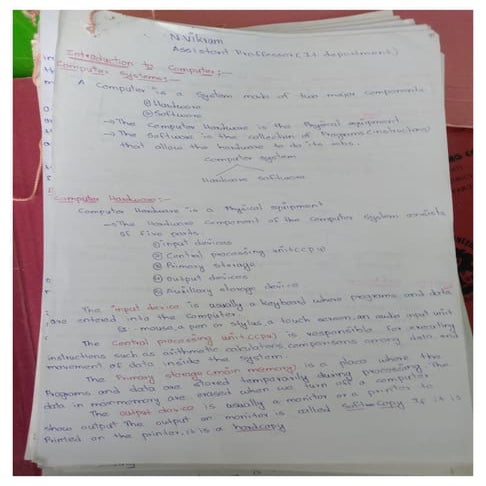 N.Vikram
Assistant Proffessor( It department)
Introduction to Computer:-
Computer Systems:-
A Computer is a System made of two major components
① Hardware
② Software
→ The Computer Hardware is the Physical equipment
→ The Software is the collection of Programs(instructions)
that allow the hardware to do its jobs.
Computer System
Hardware Software
Computer Hardware:-
Computer Hardware is a Physical equipment
→ The Hardware Component of the Computer System consists
of five parts.
① input devices
② Central processing unit(cpu)
③ Primary storage
④ output devices
⑤ Auxiliary storage device
The input device is usually a keyboard where programs and data
are entered into the Computer.
Ex: mouse, a pen or stylus, a touch screen, an audio input unit
The Central processing unit(cpu) is responsible for executing
instructions such as arithmetic calculations, comparisons among data and
movement of data inside the system.
The Primary storage(main memory) is a place where the
Programs and data are stored temporarily during processing. The
data in memory are erased when we turn off a computer.
The output device is usually a monitor or a printer to
show output The output on monitor is called Soft-Copy If it is
Printed on the printer, it is a hardcopy